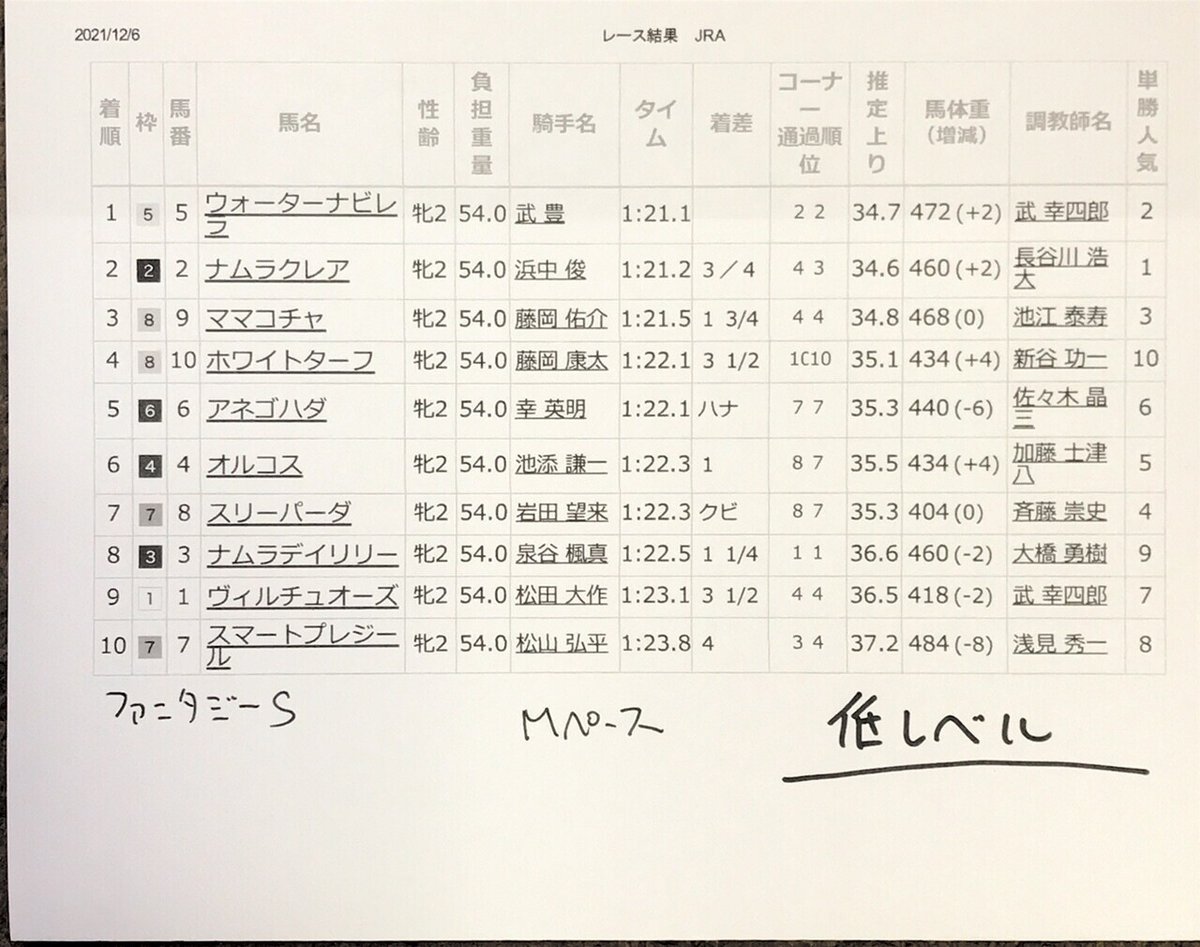 2021/12/6 レース結果 JRA
着順 枠 馬番 馬名 性齢 負担重量 騎手名 タイム 着差 コーナー通過順位 推定上り 馬体重(増減) 調教師名 単勝人気
1 5 5 ウォーターナビレラ 牝2 54.0 武 豊 1:21.1 2 2 34.7 472(+2) 武 幸四郎 2
2 2 2 ナムラクレア 牝2 54.0 浜中 俊 1:21.2 3/4 4 3 34.6 460(+2) 長谷川 浩大 1
3 8 9 ママコチャ 牝2 54.0 藤岡 佑介 1:21.5 1 3/4 4 4 34.8 468(0) 池江 泰寿 3
4 8 10 ホワイトターフ 牝2 54.0 藤岡 康太 1:22.1 3 1/2 1010 35.1 434(+4) 新谷 功一 10
5 6 6 アネゴハダ 牝2 54.0 幸 英明 1:22.1 ハナ 7 7 35.3 440(-6) 佐々木 晶三 6
6 4 4 オルコス 牝2 54.0 池添 謙一 1:22.3 1 8 7 35.5 434(+4) 加藤 士津八 5
7 7 8 スリーパーダ 牝2 54.0 岩田 望来 1:22.3 クビ 8 7 35.3 404(0) 斉藤 崇史 4
8 3 3 ナムラデイリリー 牝2 54.0 泉谷 楓真 1:22.5 1 1/4 1 1 36.6 460(-2) 大橋 勇樹 9
9 1 1 ヴィルチュオーズ 牝2 54.0 松田 大作 1:23.1 3 1/2 4 4 36.5 418(-2) 武 幸四郎 7
10 7 7 スマートプレジール 牝2 54.0 松山 弘平 1:23.8 4 3 4 37.2 484(-8) 浅見 秀一 8
ファンタジーS Mペース 低レベル